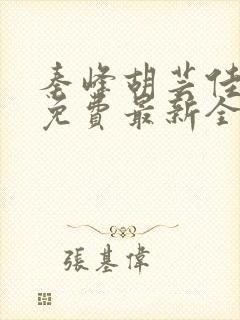 秦峰胡芸佳
免費最新全
張基偉